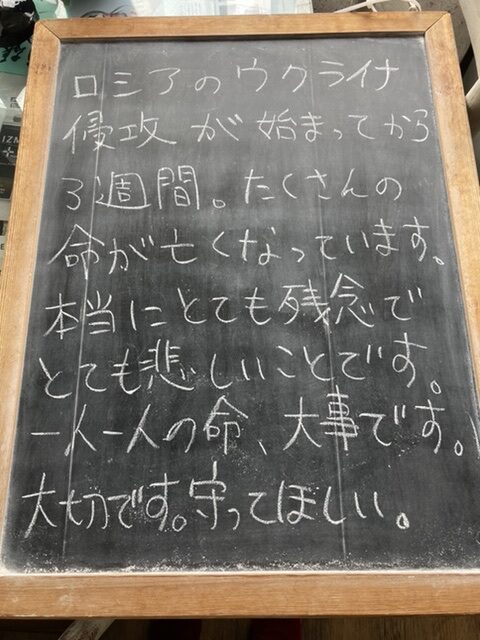 ロシアのウクライナ
侵攻が始まってから
3週間。たくさんの
命が亡くなっています。
本当にとても残念で
とても悲しいことです。
一人一人の命、大事です。
大切です。守ってほしい。